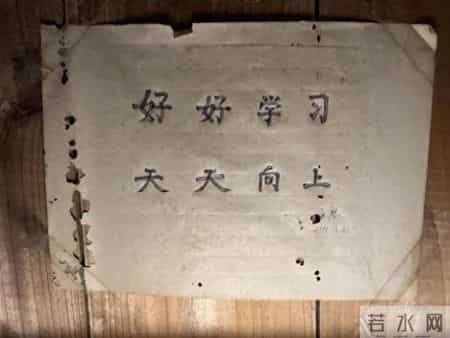 好好学习
天天向上
若水网